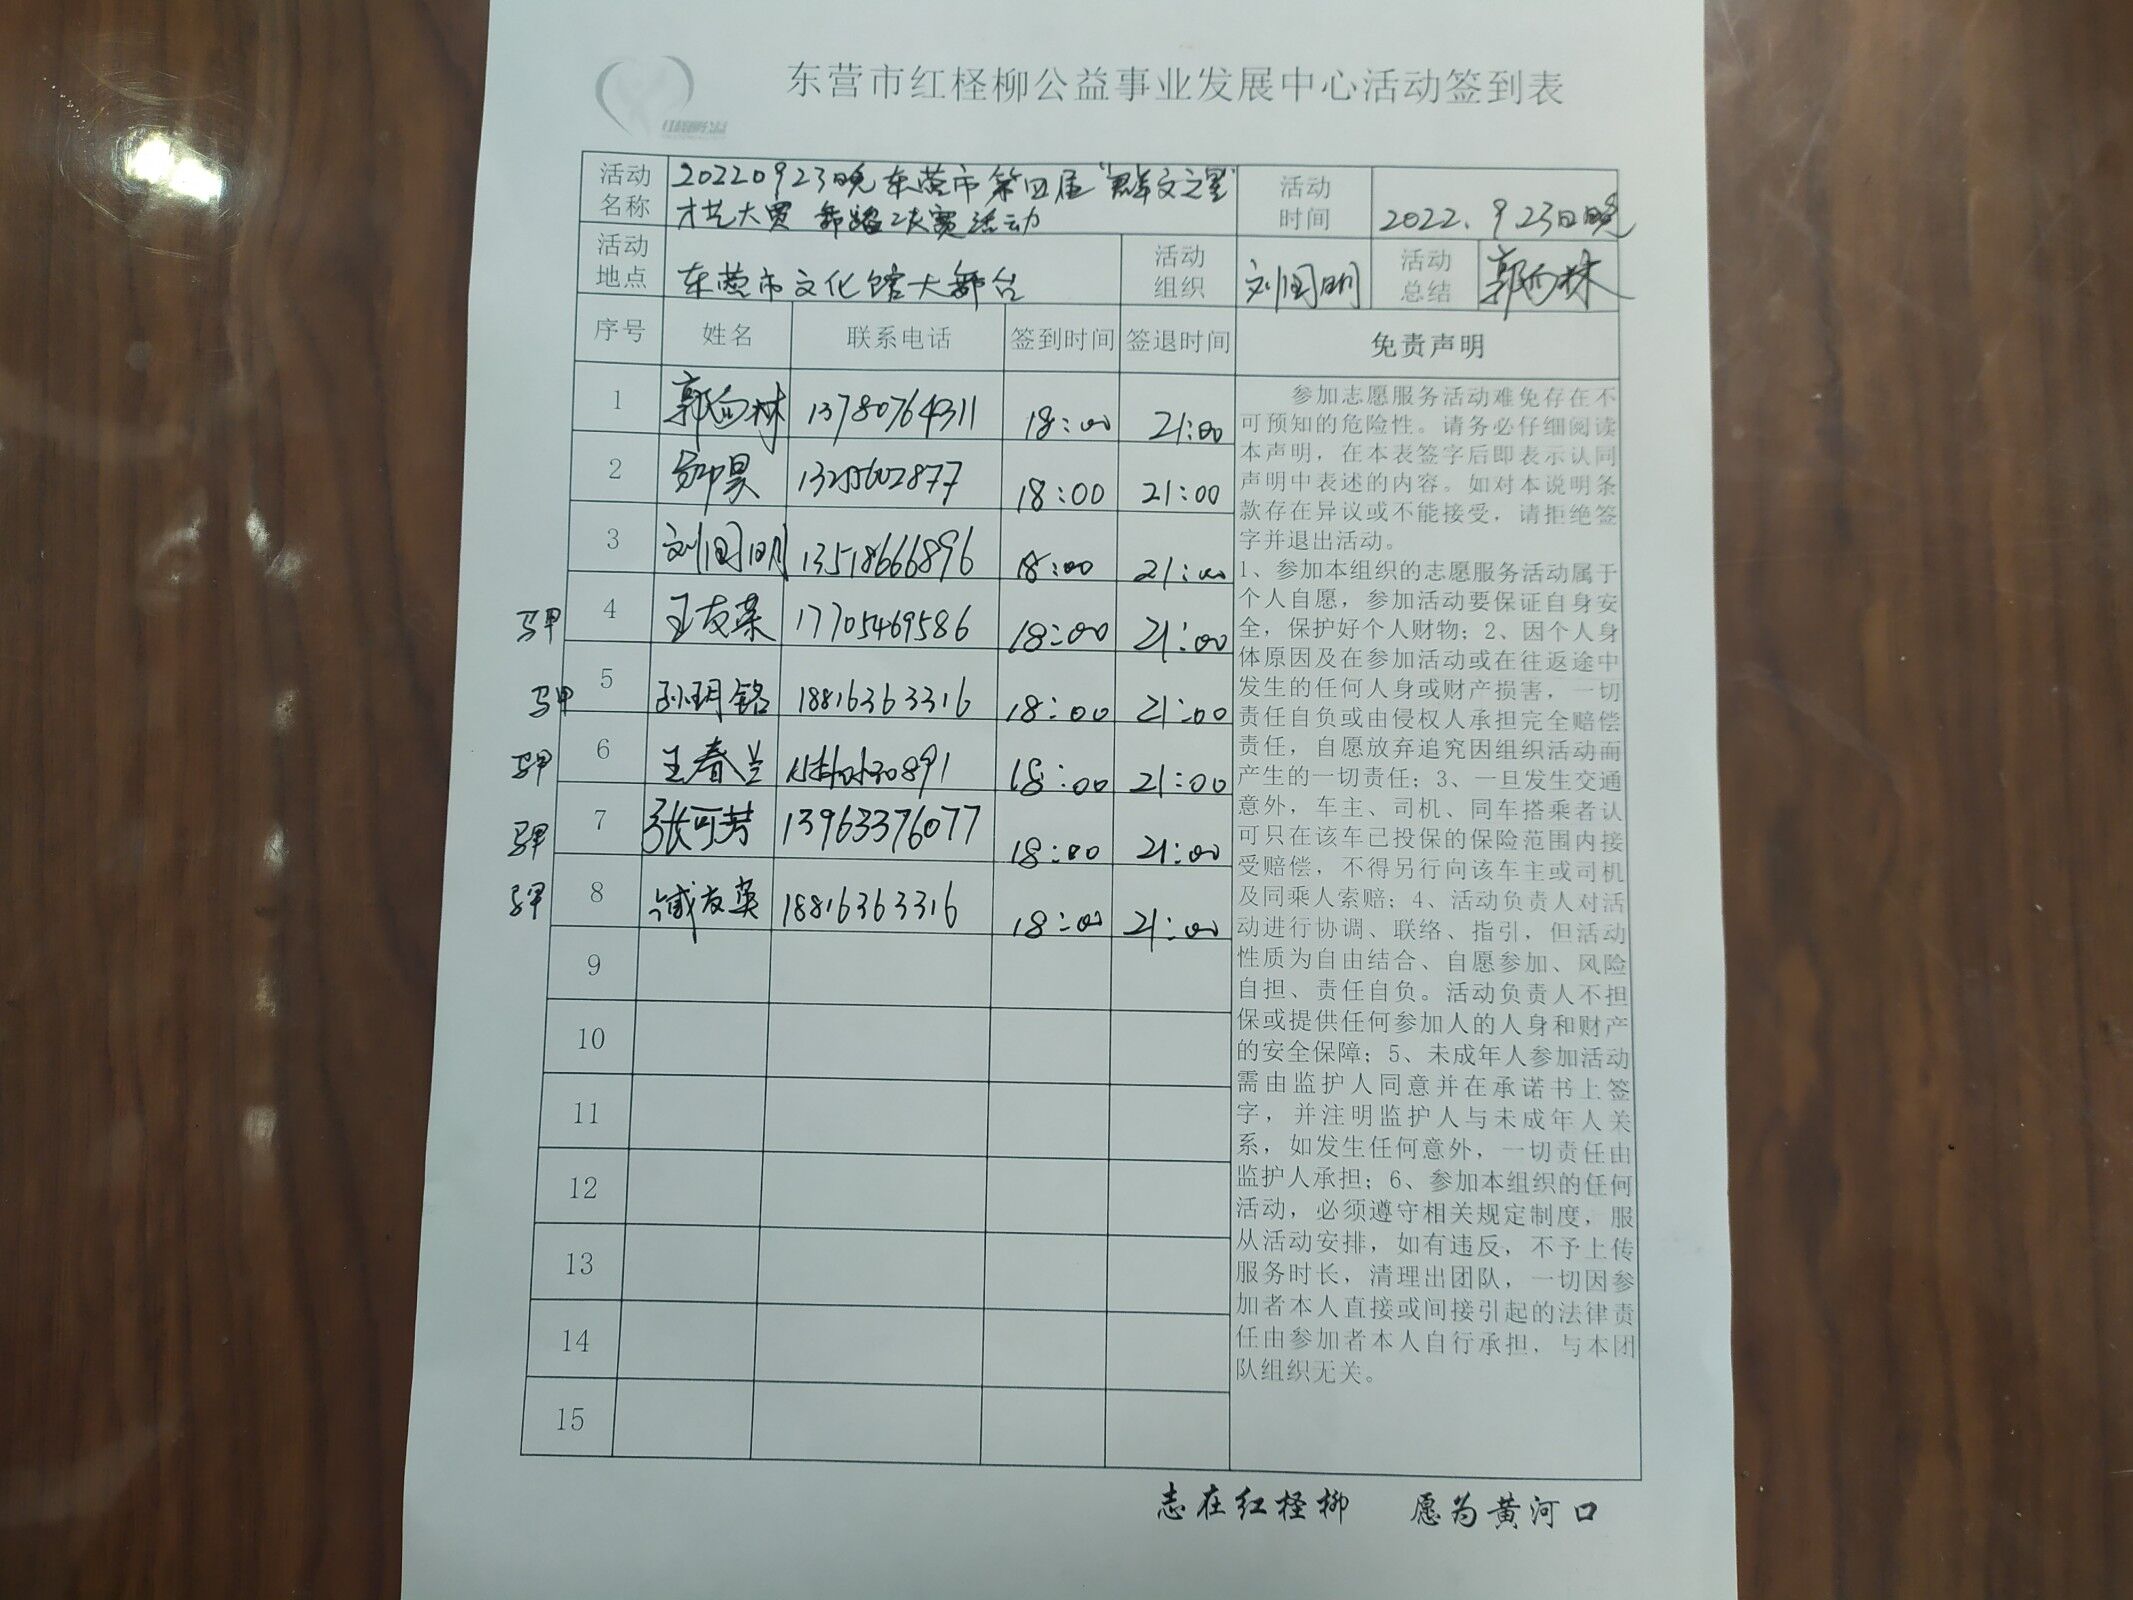 东营市红柽柳公益事业发展中心活动签到表
红柽柳公益
活动名称 20220923晚东营市第四届“群文之星”
才艺大赛 舞蹈决赛活动
活动时间 2022.9.23日晚
活动地点 东营市文化馆大舞台
活动组织 刘国明
活动总结 郭向林
序号 姓名 联系电话 签到时间 签退时间 免责声明
1 郭向林 13780764311 18:00 21:00
2 18:00 21:00
3 刘国明 13518666896 18:00 21:00
马甲 4 王友荣 17705469586 18:00 21:00
马甲 5 孙玥铭 18816363316 18:00 21:00
马甲 6 王春兰 18:00 21:00
马甲 7 张可芳 13963376077 18:00 21:00
马甲 8 臧友英 18816363316 18:00 21:00
9
10
11
12
13
14
15
参加志愿服务活动难免存在不
可预知的危险性。请务必仔细阅读
本声明，在本表签字后即表示认同
声明中表述的内容。如对本说明条
款存在异议或不能接受，请拒绝签
字并退出活动。
1、参加本组织的志愿服务活动属于
个人自愿，参加活动要保证自身安
全，保护好个人财物；2、因个人身
体原因及在参加活动或在往返途中
发生的任何人身或财产损害，一切
责任自负或由侵权人承担完全赔偿
责任，自愿放弃追究因组织活动而
产生的一切责任；3、一旦发生交通
意外，车主、司机、同车搭乘者认
可只在该车已投保的保险范围内接
受赔偿，不得另行向该车主或司机
及同乘人索赔；4、活动负责人对活
动进行协调、联络、指引，但活动
性质为自由结合、自愿参加、风险
自担、责任自负。活动负责人不担
保或提供任何参加人的人身和财产
的安全保障；5、未成年人参加活动
需由监护人同意并在承诺书上签
字，并注明监护人与未成年人关
系，如发生任何意外，一切责任由
监护人承担；6、参加本组织的任何
活动，必须遵守相关规定制度，服
从活动安排，如有违反，不予上传
服务时长，清理出团队，一切因参
加者本人直接或间接引起的法律责
任由参加者本人自行承担，与本团
队组织无关。
志在红柽柳 愿为黄河口